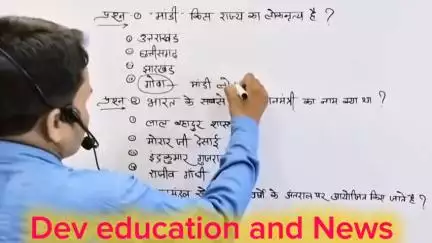 प्रश्न ① "मांडी" किस राज्य का लोकनृत्य है ?
उत्तराखंड
छत्तीसगढ़
झारखंड
गोवा - मांडी
प्रश्न ② भारत के सबसे का नाम क्या था ?
लाल बहादुर
मोरार जी देसाई
इन्द्रकुमार गुजरा
राजीव गाँधी
के अंतराल पर आयोजित किए जाते है ?
Dev education and News